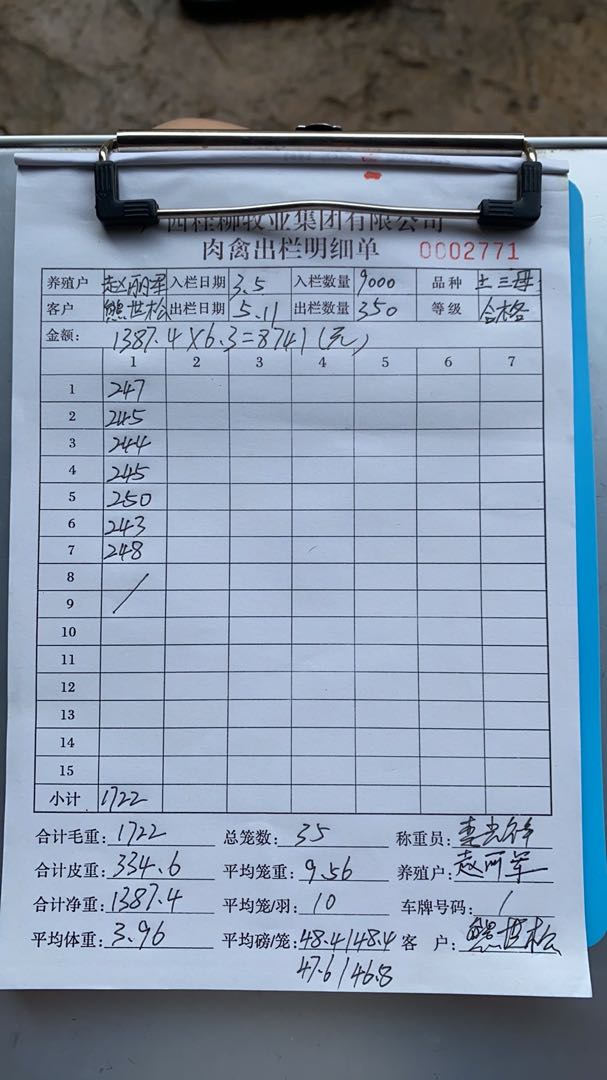 西桂柳牧业集团有限公司
肉禽出栏明细单 0002771
养殖户 赵丽军 入栏日期 3.5 入栏数量 9000 品种 土三母
客户 熊世松 出栏日期 5.11 出栏数量 350 等级 合格
金额: 1387.4×6.3=8741(元)
1 2 3 4 5 6 7
1 247
2 245
3 244
4 245
5 250
6 243
7 248
8
9
10
11
12
13
14
15
小计 1722
合计毛重: 1722 总笼数: 35 称重员:
合计皮重: 334.6 平均笼重: 9.56 养殖户: 赵丽军
合计净重: 1387.4 平均笼/羽: 10 车牌号码: /
平均体重: 3.96 平均磅/笼: 48.4/48.4 客 户: 熊世松
47.6/46.8